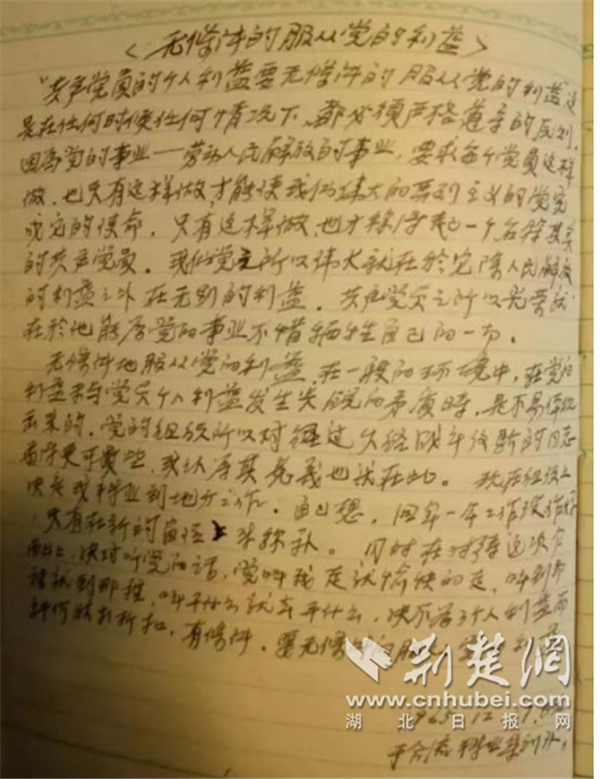 《无条件的服从党的利益》
"共产党员的个人利益要无条件的服从党的利益"这
是在任何时候任何情况下,都必须严格遵守的原则。
因为党的事业——劳动人民解放的事业,要求每个党员这样
做,也只有这样做才能使我们伟大的马列主义的党完
成它的使命,只有这样做,也才称得起一个名符其实
的共产党员。我们党之所以伟大就在於它除人民解放
的利益之外在无别的利益。共产党员之所以光荣就
在於他能为党的事业不惜牺牲自己的一切。
无条件地服从党的利益在一般的环境中,在党的
利益未与党员个人利益发生尖锐的矛盾时,是不易体现
出来的。党的组织所以对经过久经战斗考验的同志
看得更可贵些,我认为其意义也就在此。现在组织上
决定我转业到地方工作。自己想,回年一年工作没作好
,只有在新的岗位上来弥补。同时在对待这次
问题上,决对听党的话,党叫我走就愉快的走,叫到那
里就到那里,叫干什么就去干什么,决不为了个人利益而
打折扣,有条件。要无条件的服从
荆楚網
www.cnhubei.com
湖北日报网
1965.12